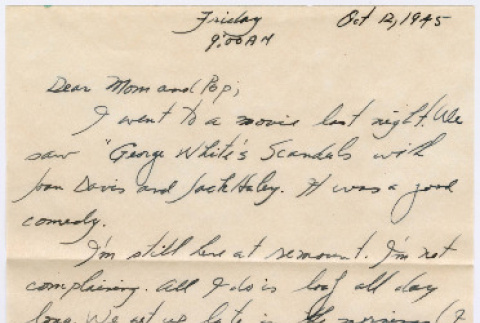 Friday Oct 12, 1945
9:00 AM
Dear Mom and Pop;
I went to a movie last night. We
saw "George White's Scandals with
Joan Davis and Jack Haley. It was a good
comedy.
I'm still here at remount. I'm not
complaining. All I do is loaf all day
long. We get up late in the morning (I